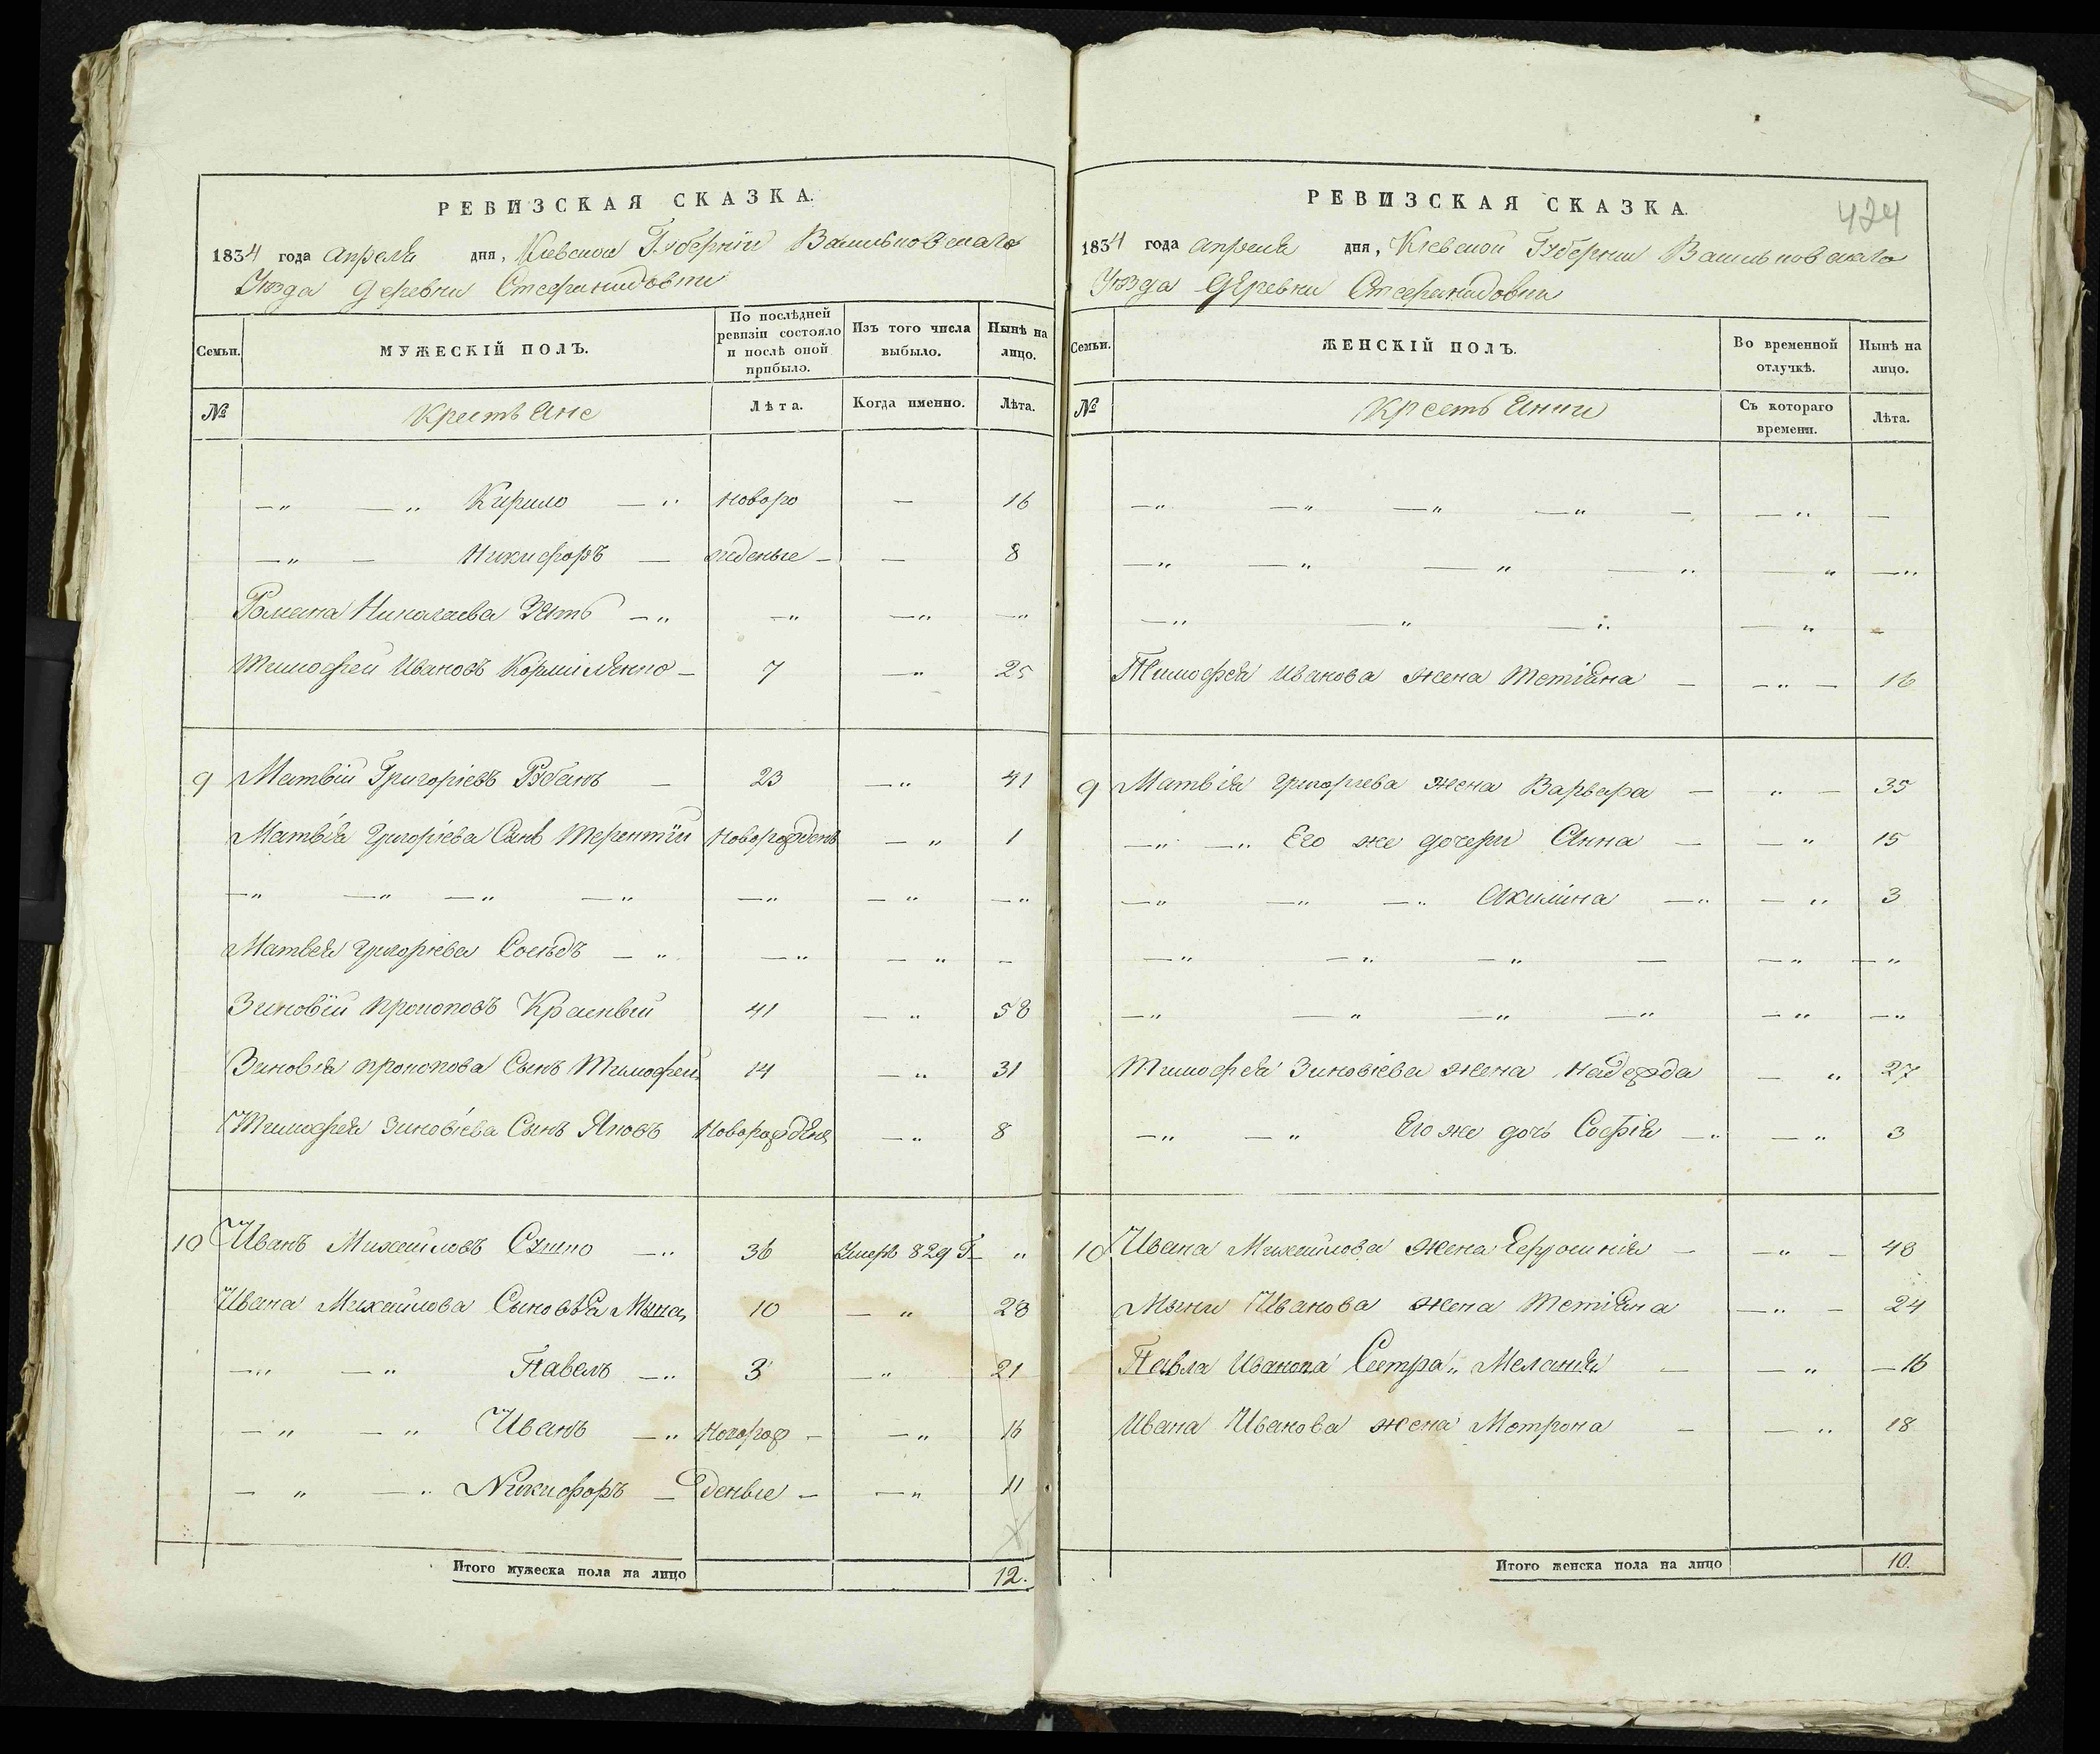 РЕВИЗСКАЯ СКАЗКА.
1834 года апреля дня, Киевской Губерніи Васильковскаго
Уезда деревни Стефанидовки
Семьи. МУЖЕСКІЙ ПОЛЪ. По послѣдней ревизіи состояло и послѣ оной прибыло. Изъ того числа выбыло. Нынѣ на лицо.
№ Крестьяне Лѣта. Когда именно. Лѣта.
—„ —„ Кирило —„ новоро — 16
—„ — Никифоръ — жденые — — 8
Романа Николаева Зять —„ —„ —„ —„
Тимофей Ивановъ — 7 —„ 25
9 Матвій Григоріевъ Рубанъ — 23 —„ 41
Матвія Григоріева Сынъ Терентій Новорожденъ —„ 1
—„ —„ —„ —„ —„ —„ —„
Матвея Григоріева Соседъ —„ —„ —„ —
Зиновій Прокоповъ Красный 41 —„ 58
Зиновія Прокопова Сынъ Тимофей 14 —„ 31
Тимофея Зиновіева Сынъ Яковъ Новорожденъ —„ 8
10 Иванъ Михайловъ —„ 36 Умеръ 829 Г— „
Ивана Михайлова Сыновья Мына 10 —„ 28
—„ —„ Павелъ —„ 3 —„ 21
—„ —„ Иванъ —„ Новорож— —„ 16
—„ —„ Никифоръ — деные — —„ 11
Итого мужеска пола на лицо 12.
424
РЕВИЗСКАЯ СКАЗКА.
1834 года апреля дня, Киевской Губернии Васильковскаго
Уезда деревни Стефанидовки
Семьи. ЖЕНСКІЙ ПОЛЪ. Во временной отлучкѣ. Нынѣ на лицо.
№ Крестьянки Съ котораго времени. Лѣта.
—„ —„ —„ —„ — —„ —
—„ —„ —„ —„ —„ —„
—„ —„ —„ —„ —
Тимофея Иванова жена Тетіяна — —„ — 16
9 Матвія Григорева жена Варвара — „ — 35
—„ —„ Его же дочери Анна — —„ 15
—„ —„ —„ Акилина —„ —„ 3
—„ —„ —„ — —„ —„
—„ —„ —„ —„ —„ —„
Тимофея Зиновіева жена Надежда —„ 27
—„ —„ Его же дочь Софія —„ —„ 3
10 Ивана Михайлова жена Ефросинія — —„ — 48
Мыни Иванова жена Тетіяна —„ — 24
Павла Иванова Сестра „ Меланія — —„ — 16
Ивана Иванова жена Мотрона — —„ 18
Итого женска пола на лицо 10.